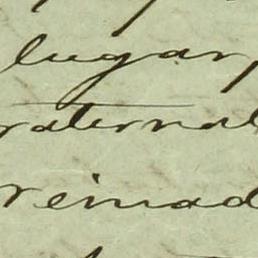 lugar,
raternal
reinad